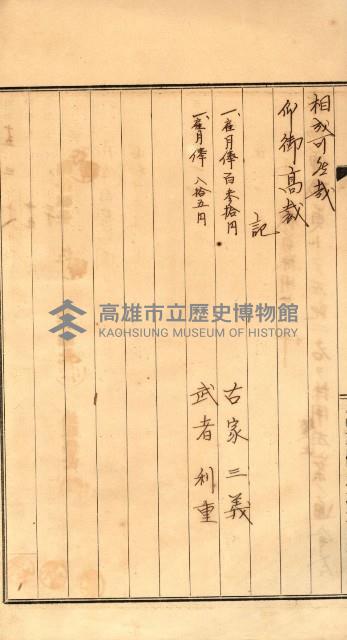 相成可然哉
仰御高裁
記
一、在月俸百参拾円 古家三義
一、在月俸八拾五円 武者利重
高雄市立歷史博物館
KAOHSIUNG MUSEUM OF HISTORY